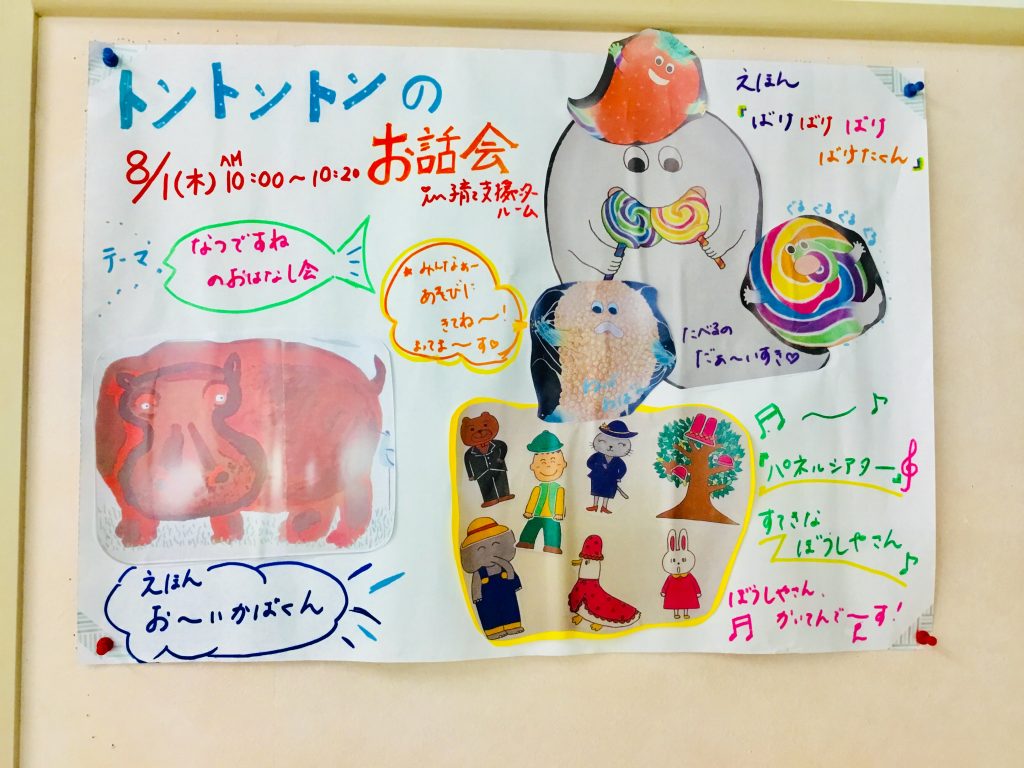 トントントンの
お話会
8/1(木) AM 10:00～10:20
in 子育て支援センター
ルーム
テーマ
なつですね
のおはなし会
みんなぁ～
あそびに
きてね～!
まってま～す♡
えほん
お～いかばくん
えほん
『ばけばけばけ
ばけたくん』
ぐるぐるぐるぐる
たべるの
だぁ～いすき♡
♬～♪
『パネルシアター』
すてきな
ぼうしやさん♪
ぼうしやさん、
♬かいてんで～す!